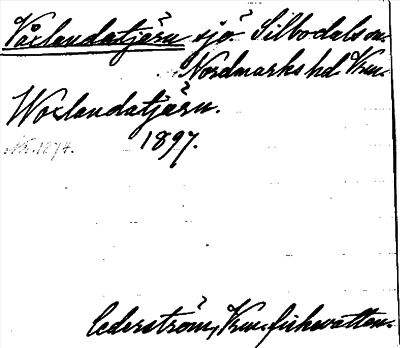 Våxlandatjärn sjö Silbodals sn.
Nordmarks hd Vrm.
Woxlandatjärn.
1897.
Cederström, Vrm. fiskevatten.